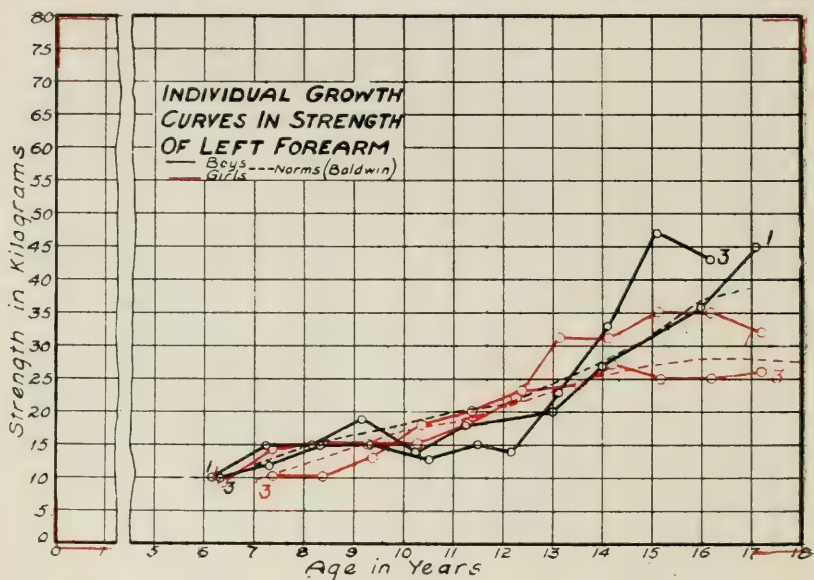 80
75
70
65
60
55
50
45
40
35
30
25
20
15
10
5
0
Strength in Kilograms
INDIVIDUAL GROWTH
CURVES IN STRENGTH
OF LEFT FOREARM
Boys
Girls
Norms (Baldwin)
1
3
1
3
1
1
3
3
0 1 5 6 7 8 9 10 11 12 13 14 15 16 17 18
Age in Years